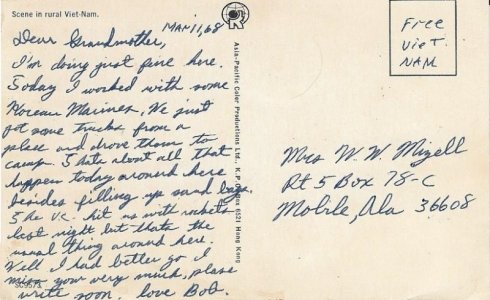 Scene in rural Viet-Nam.
MAR 11, 68
Dear Grandmother,
I'm doing just fine here.
Today I worked with some
Korean Marines. We just
got some trucks from a
place and drove them to
camp. Thats about all that
happen today around here
besides filling up sand bags.
The V.C. hit us with rockets
last night but thats the
usual thing around here.
Well I had better go I
miss you very much, please
write soon, love Bob.
Asia-Pacific Color Productions Ltd. K.P.O. Box 6521 Hong Kong
Free
VieT.
NAM
Mrs W. W. Mizell
Rt 5 Box 78-C
Mobile, Ala 36608